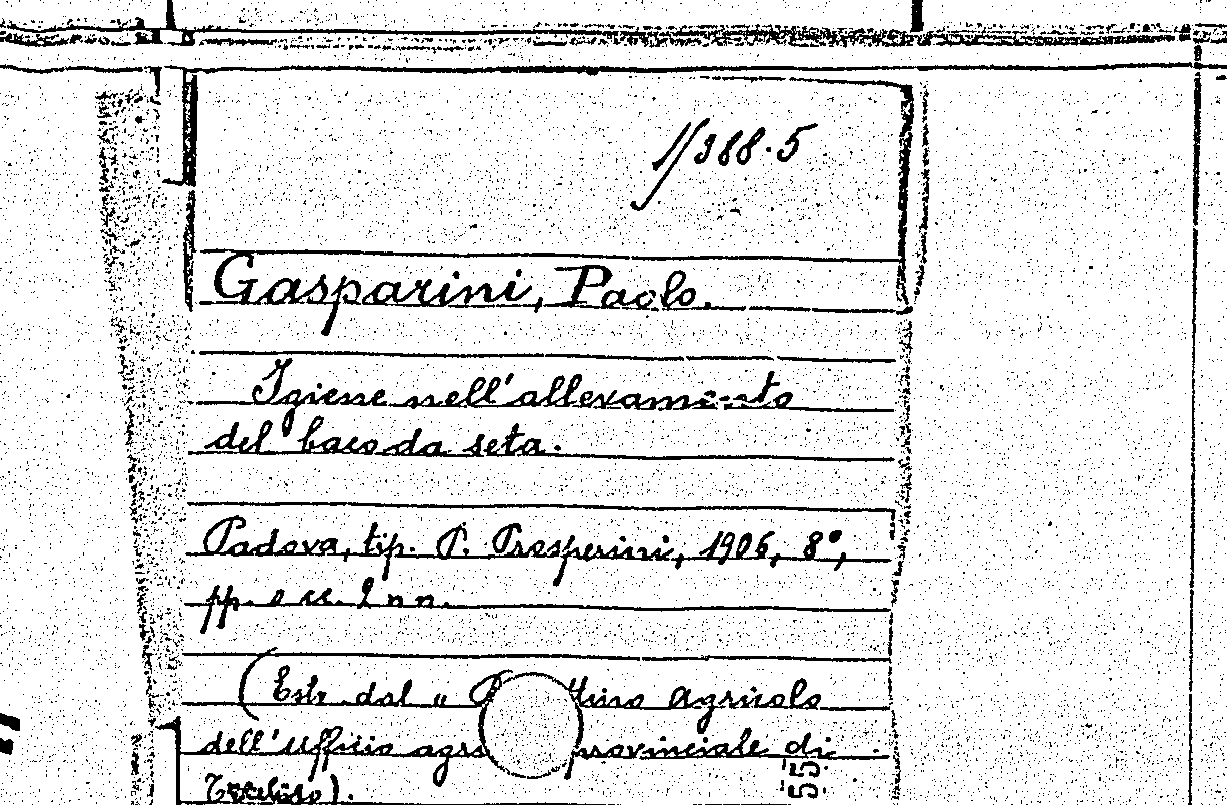 388.5
Gasparini, Paolo.
Igiene nell'allevamento
del baco da seta.
Padova, tip. P. Prosperini, 1906, 8°,
pp. 2 nn.
(Estr. dal " agricolo
dell'Ufficio provinciale di
55